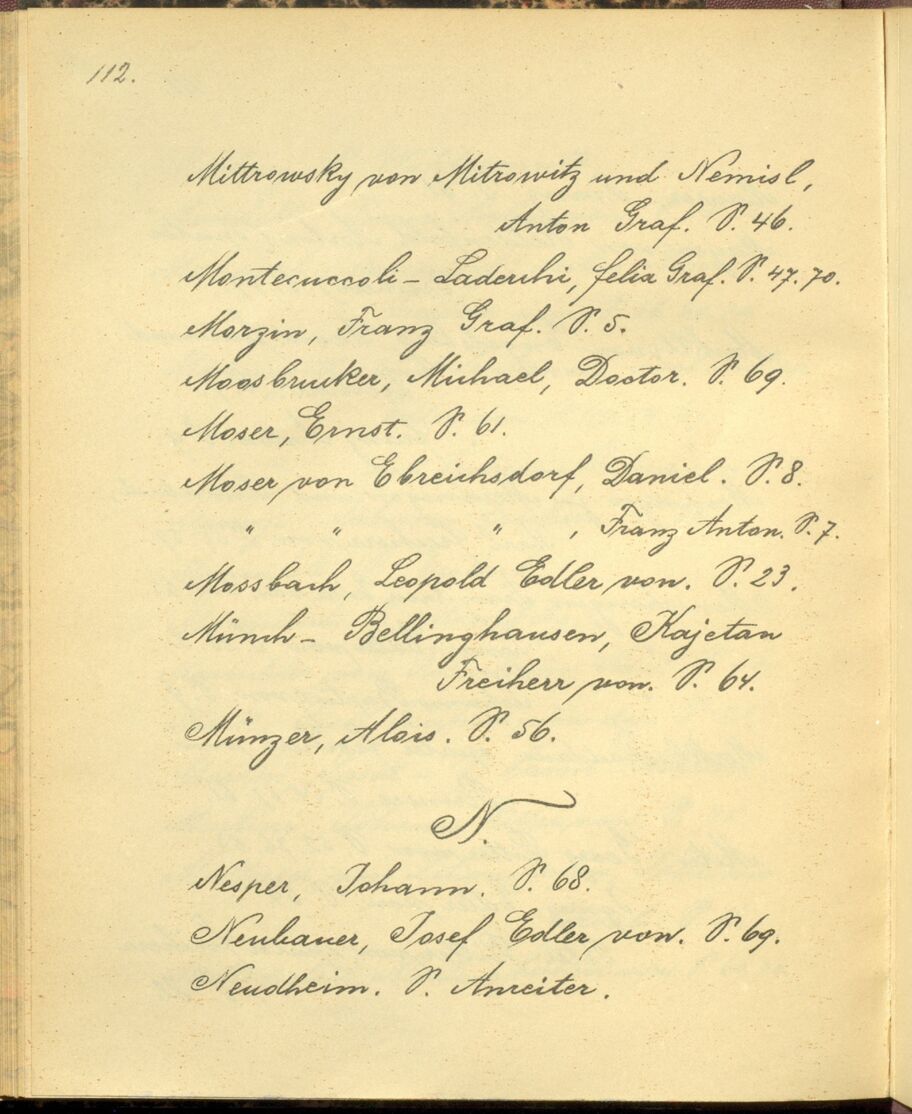 112.
Mittrowsky von Mitrowitz und Nemisl,
Anton Graf. S. 46.
Montecuccoli - Laderchi, Felix Graf. S. 47. 70.
Morzin, Franz Graf. S. 5.
Moosbrucker, Michael, Doctor. S. 69.
Moser, Ernst. S. 61.
Moser von Ebreichsdorf, Daniel. S. 8.
" " " , Franz Anton. S. 7.
Mossbach, Leopold Edler von. S. 23.
Münch - Bellinghausen, Kajetan
Freiherr von. S. 64.
Münzer, Alois. S. 56.
N.
Nesper, Johann. S. 68.
Neubauer, Josef Edler von. S. 69.
Neudheim. S. Anreiter.